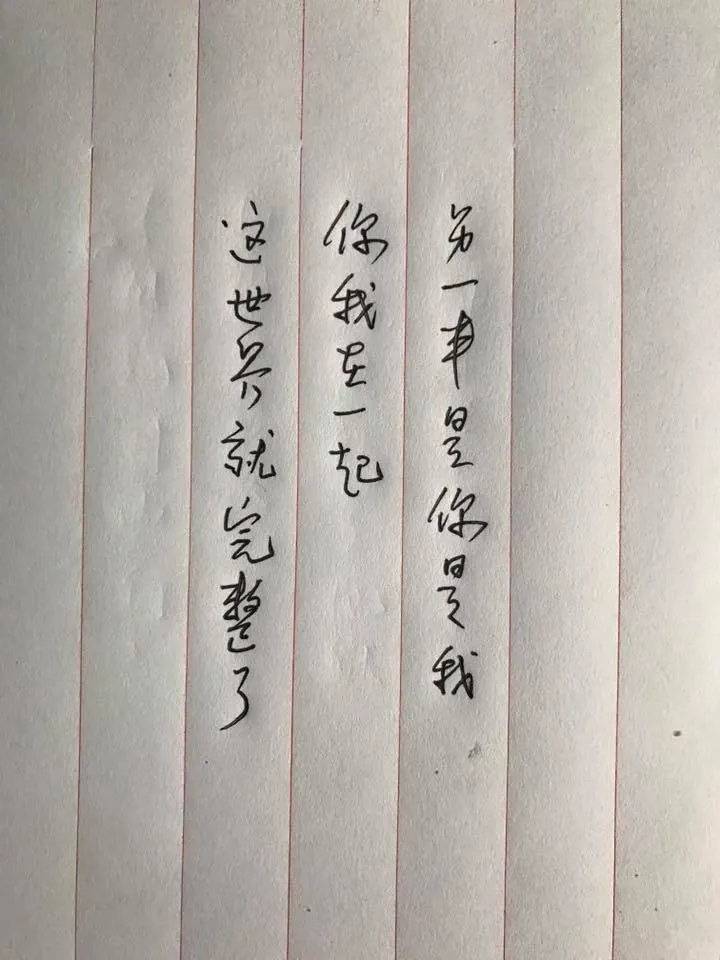 另一半是你是我
你我在一起
这世界就完整了